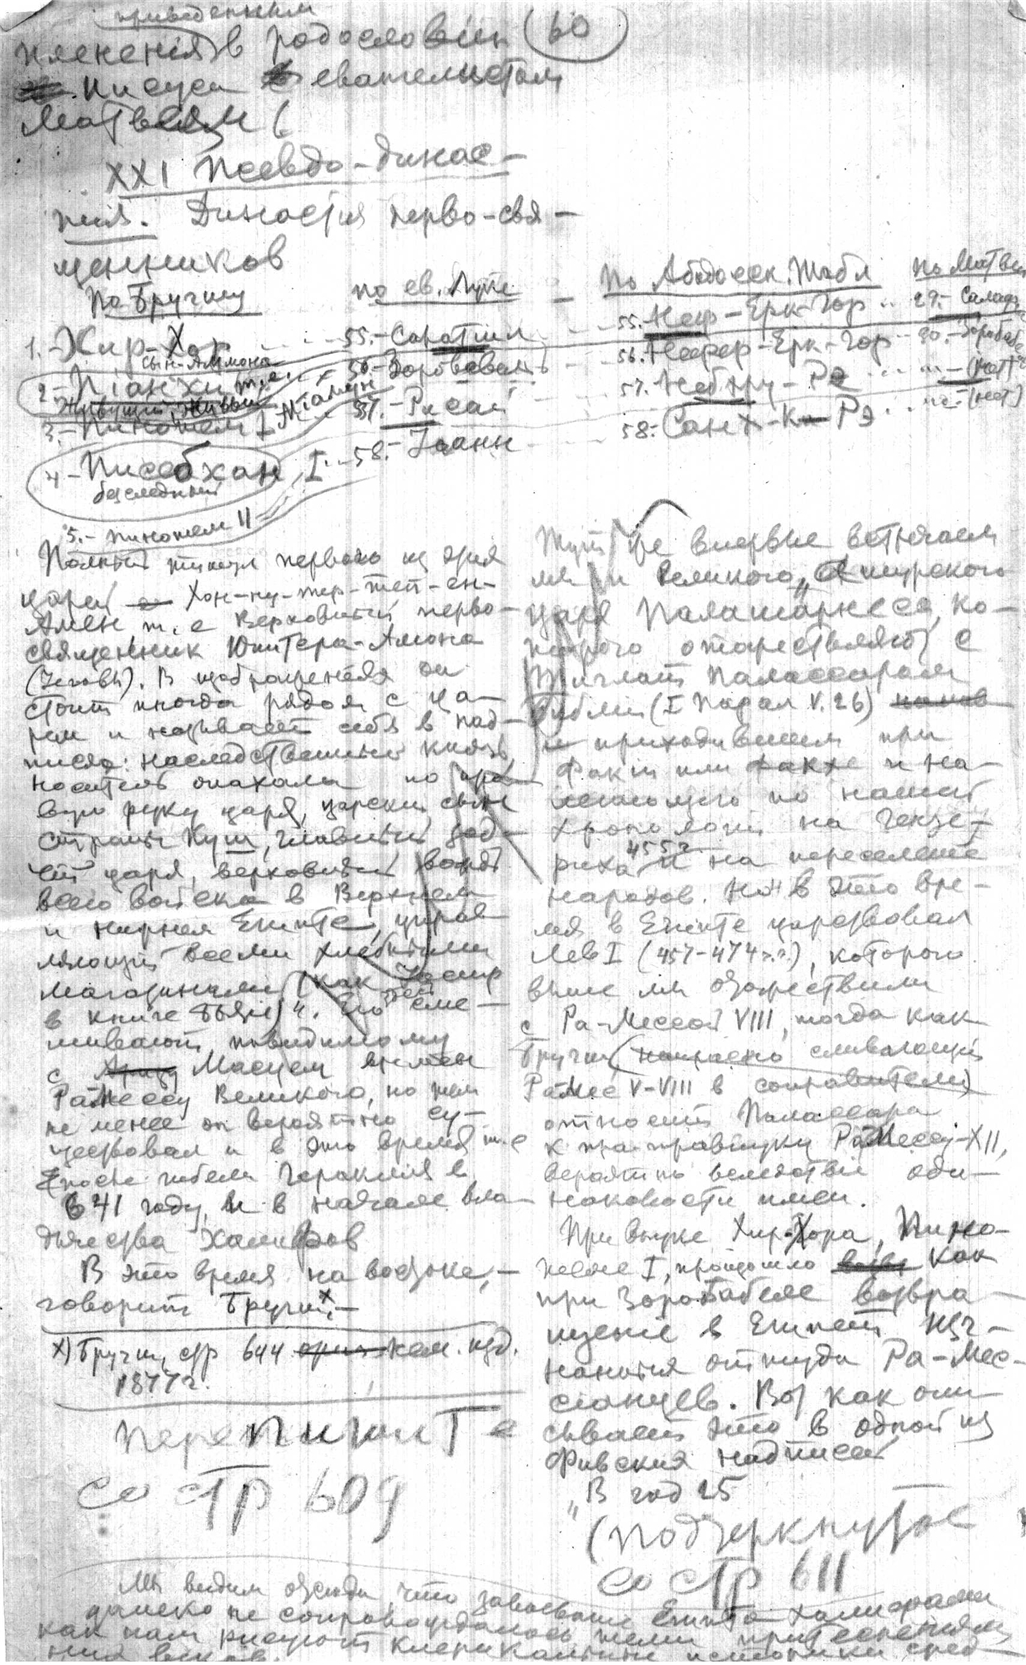 приведеннымъ
пленения в родословии (60)
Иисуса евангелистом
Матвеем (
XXI псевдо-динас-
тия. Династия перво-свя-
щенников
По Бругшу
по ев. Луке
По Абидосск. Табл
по Матвею
1.- Хир-Хор
55.- Салатиил
55.- Неф-Ерк-Гор
29.- Салаф.
2.- Пианхи т.е.
сын Аммона
56.- Зоровавель
56.- Нефер-Ерк-Гор
30. Зоробабель
живущий, живый
Миамун
3.- Пинотем I
57.- Рисай
57. Небхру-Рэ
(нет)
4.- Писебхан I
безследный
58.- Иоанн
58.- Санх-К-Рэ
(нет)
5.- Пинотем II
Полный титул первого из этих
царей Хон-ну-тер-теп-ен-
Амен т.е Верховный перво-
священник Юпитера-Амона
(Иеговы). В изображениях он
стоит иногда рядом с ца-
рем и называет себя в над-
писях: наследственный князь,
носитель опахала по пра-
вую руку царя, царский сын
страны Куш, главный зод-
чий царя, верховный вождь
всего войска в Верхнем
и нижнем Египте, управ
ляющий всеми хлебными
магазинами (как Иосиф
в книге Бытия). Его сме-
шивают, повидимому
с Масуем времен
Рамессу Великого, но тем
не менее он вероятно су-
ществовал и в это время т.е
после гибели Гераклия в
641 году, и в начале вла-
дычества Халифов
В это время на востоке,-
говорит Бругш х,-
х) Бругш, стр 644 нем. изд.
1877 г.
Перепишите
со стр 609
Тут же впервые встречаем
мы и Великого "Ассирского
царя Палашарнеса, ко-
торого отожествляют с
Тиглат Палассаром
Библии (I Парал V.26)
и приходившем при
Факии или Факхе и на-
легающего по нашей
хронологии на Гензе-
риха 455г и на переселение
народов. Но в это вре-
мя в Египте царствовал
Лев I (457-474 гг), которого
выше мы отожествили
с Ра-Мессой VIII, тогда как
Бругш (напрасно сливающий
Рамзес V-VIII в соправителей)
относит Палассара
к пра-правнуку Рамессу-XII,
вероятно вследствие оди-
наковости имен.
При внуке Хир-Хора, Пино-
теме I, произошло как
при Зоробабеле возвра-
щение в Египет из-
нанных оттуда Ра-Мес-
сианцев. Вот как опи-
сывает это в одной из
Фивских надписей
"В год 25
(подчеркнутое
со стр 611
Мы видим отсюда, что завоевание Египта Халифами
далеко не сопровождалось теми притеснениями,
как нам рисуют клерикальные историки сред-
них веков.